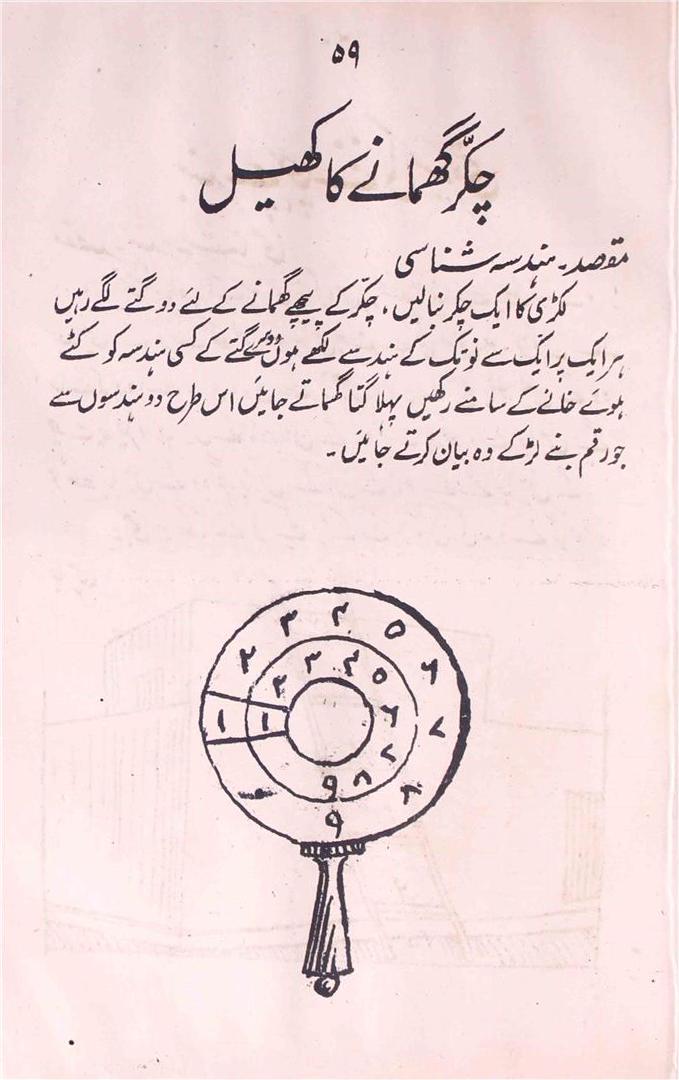 ۵۹
چکّر گھمانے کا کھیل
مقصد۔ ہندسہ شناسی
لکڑی کا ایک چکر بنالیں، چکّر کے پیچھے گھمانے کے لئے دو گتے لگے رہیں
ہر ایک پر ایک سے نو تک کے ہندسے لکھے ہوں دوسرے گتے کے کسی ہندسہ کو کٹے
ہوئے خانے کے سامنے رکھیں پہلا گتا گھماتے جائیں اس طرح دو ہندسوں سے
جو رقم بنے لڑکے وہ بیان کرتے جائیں۔
۱ ۲ ۳ ۴ ۵ ۶ ۷ ۸ ۹
۱ ۲ ۳ ۴ ۵ ۶ ۷ ۸ ۹